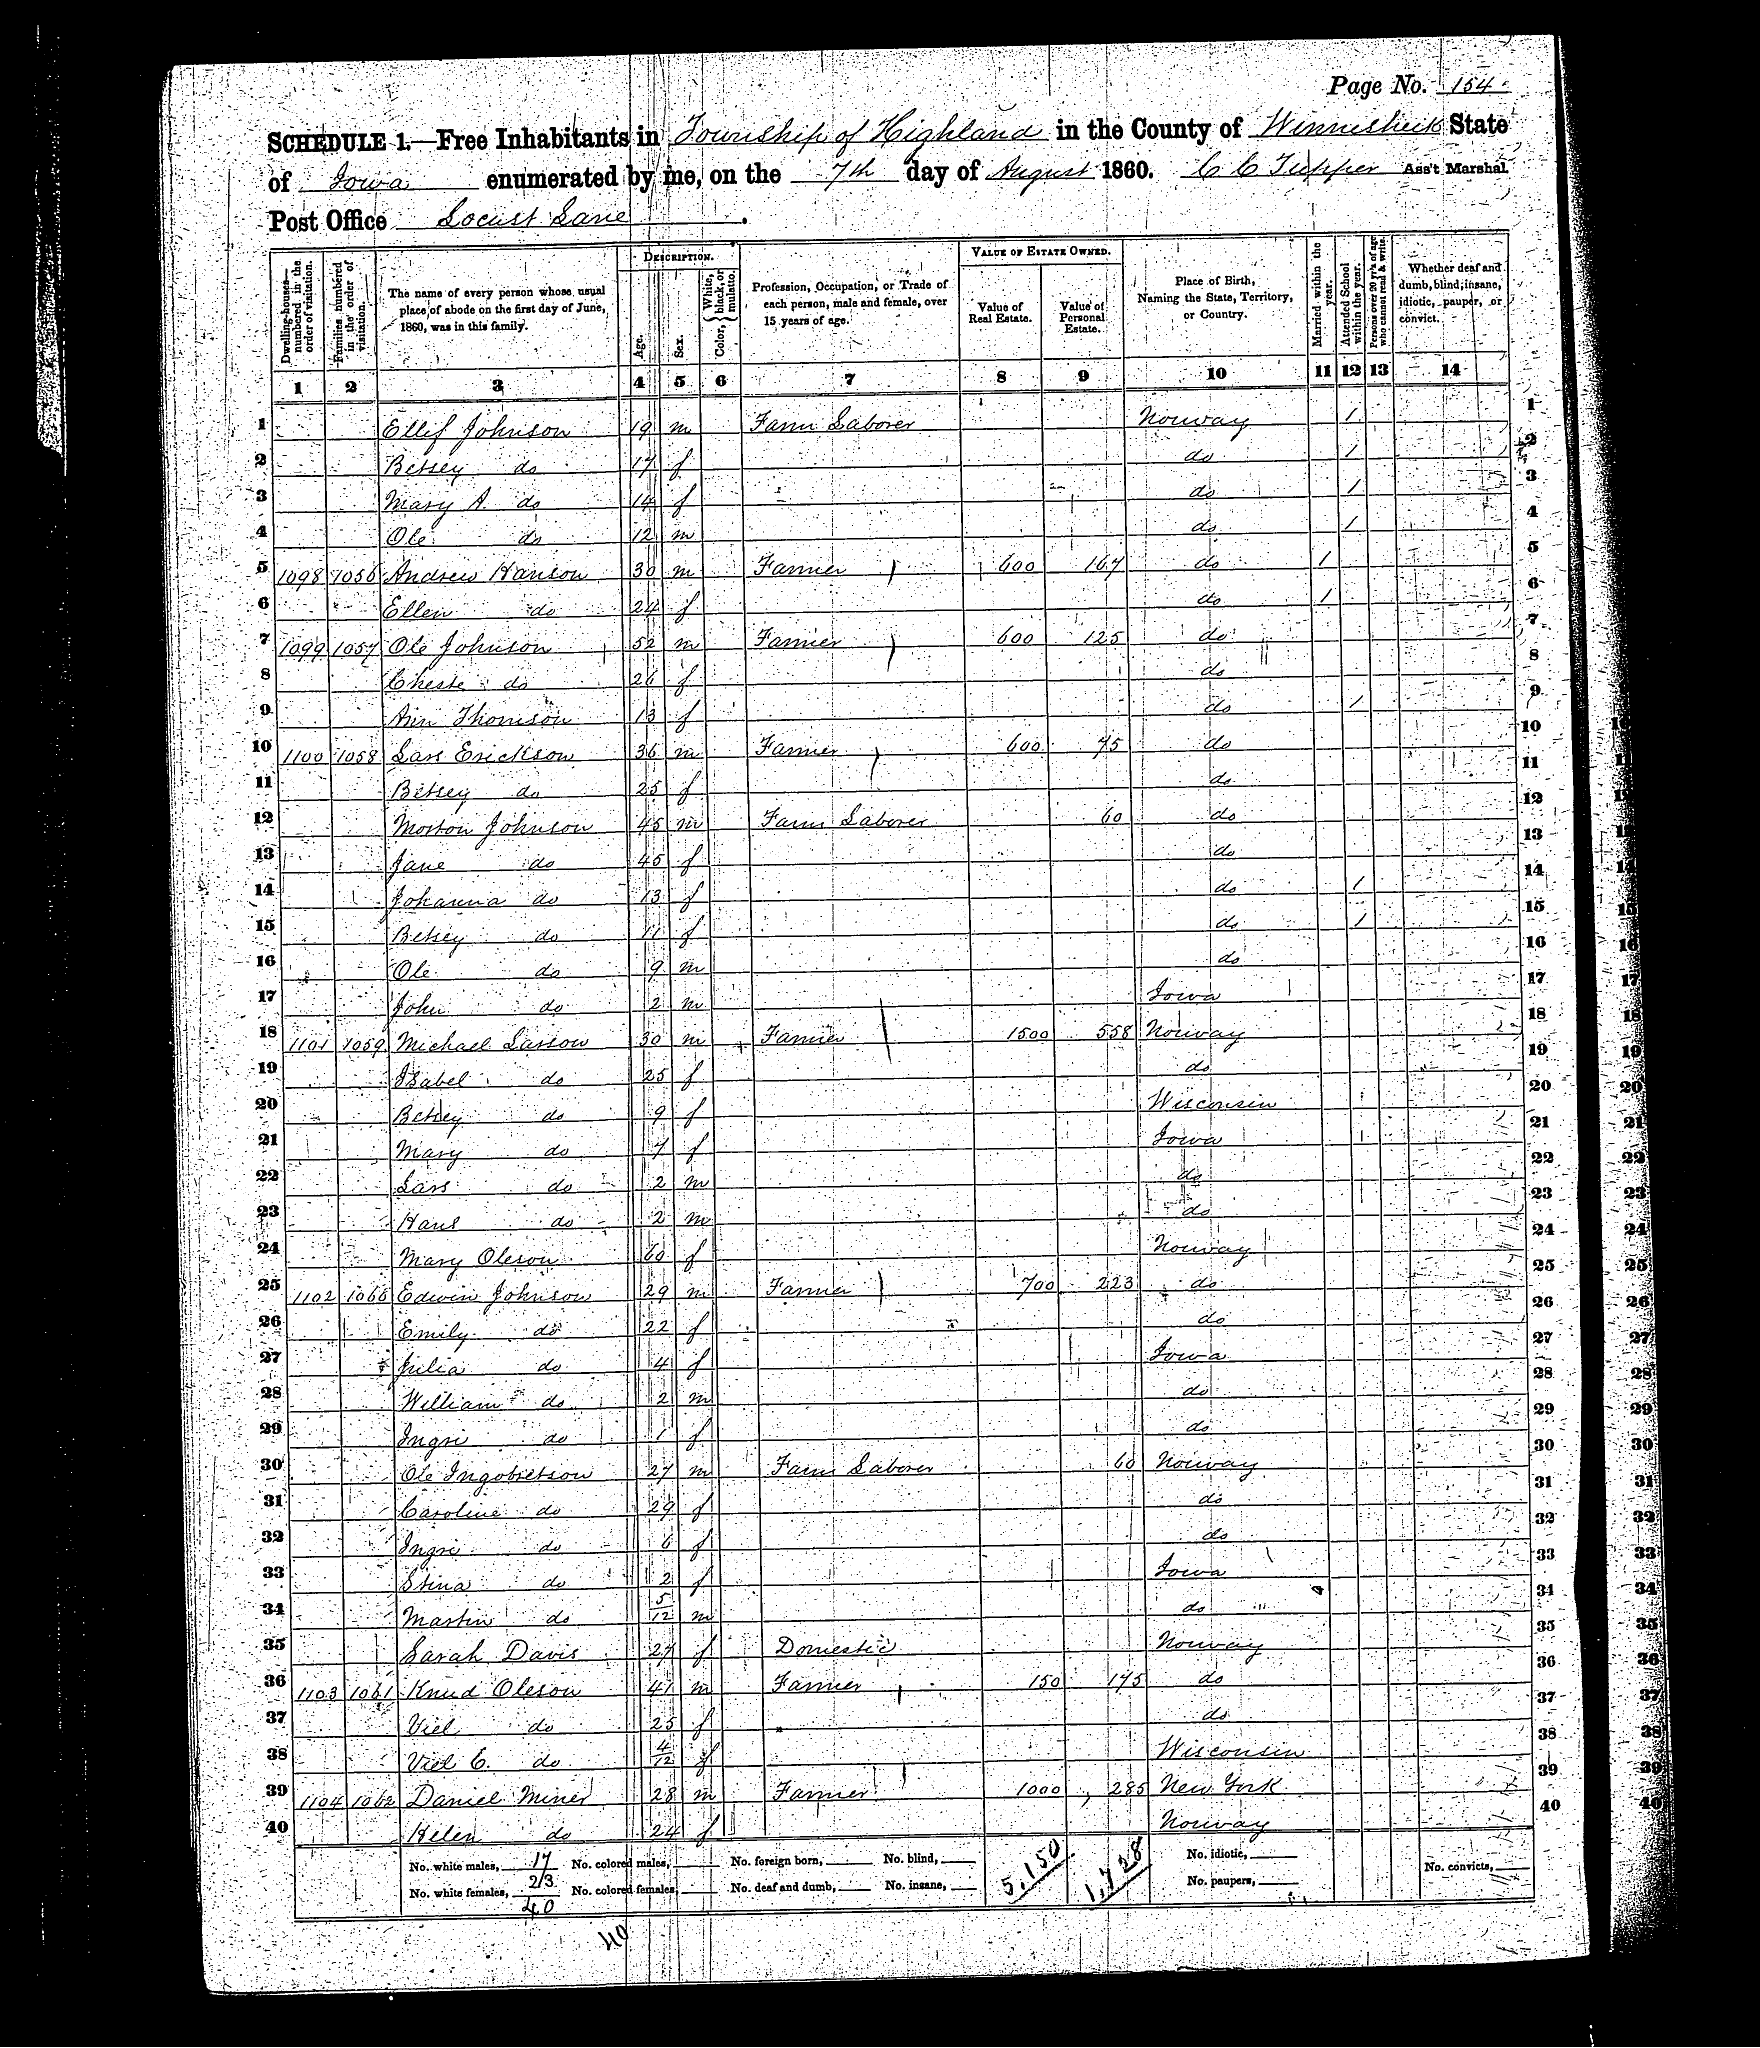 Page No. 154
SCHEDULE 1.—Free Inhabitants in Township of Highland in the County of Winnesheik State
of Iowa enumerated by me, on the 7th day of August 1860. C C Tupper Ass't Marshal.
Post Office Locust Lane.
DESCRIPTION. VALUE OF ESTATE OWNED.
Dwelling-houses—numbered in the order of visitation. Families numbered in the order of visitation. The name of every person whose usual place of abode on the first day of June, 1860, was in this family. Age. Sex. Color, White, black, or mulatto. Profession, Occupation, or Trade of each person, male and female, over 15 years of age. Value of Real Estate. Value of Personal Estate. Place of Birth, Naming the State, Territory, or Country. Married within the year. Attended School within the year. Persons over 20 y'rs of age who cannot read & write. Whether deaf and dumb, blind, insane, idiotic, pauper, or convict.
1 2 3 4 5 6 7 8 9 10 11 12 13 14
1 Ellif Johnson 19 m Farm Laborer Norway 1 1
2 Betsey do 17 f do 1 2
3 Mary A. do 14 f do 1 3
4 Ole do 12 m do 1 4
5 1098 1056 Andrew Hanson 30 m Farmer 600 167 do 1 5
6 Ellen do 24 f do 1 6
7 1099 1057 Ole Johnson 52 m Farmer 600 125 do 7
8 Cheste do 26 f do 8
9 Ann Thomson 13 f do 1 9
10 1100 1058 Lars Erickson 36 m Farmer 600 75 do 10
11 Betsey do 25 f do 11
12 Morton Johnson 45 m Farm Laborer 60 do 12
13 Jane do 45 f do 13
14 Johanna do 13 f do 1 14
15 Betsey do 11 f do 1 15
16 Ole do 9 m do 16
17 John do 2 m Iowa 17
18 1101 1059 Michael Larson 30 m Farmer 1500 558 Norway 18
19 Isabel do 25 f do 19
20 Betsey do 9 f Wisconsin 20
21 Mary do 7 f Iowa 21
22 Lars do 2 m do 22
23 Hans do 2 m do 23
24 Mary Oleson 60 f Norway 24
25 1102 1060 Edwin Johnson 29 m Farmer 700 223 do 25
26 Emily do 22 f do 26
27 Julia do 4 f Iowa 27
28 William do 2 m do 28
29 Ingri do 1 f do 29
30 Ole Ingobretson 27 m Farm Laborer 60 Norway 30
31 Caroline do 29 f do 31
32 Ingri do 6 f do 32
33 Stina do 2 f Iowa 33
34 Martin do 5/12 m do 34
35 Sarah Davis 27 f Domestic Norway 35
36 1103 1061 Knud Oleson 41 m Farmer 150 175 do 36
37 Viel do 25 f do 37
38 Viel E. do 4/12 f Wisconsin 38
39 1104 1062 Daniel Miner 28 m Farmer 1000 285 New York 39
40 Helen do 24 f Norway 40
No. white males, 17 No. colored males, No. foreign born, No. blind, 5,150 1,728 No. idiotic, No. convicts,
No. white females, 23 No. colored females, No. deaf and dumb, No. insane, No. paupers,
40
40